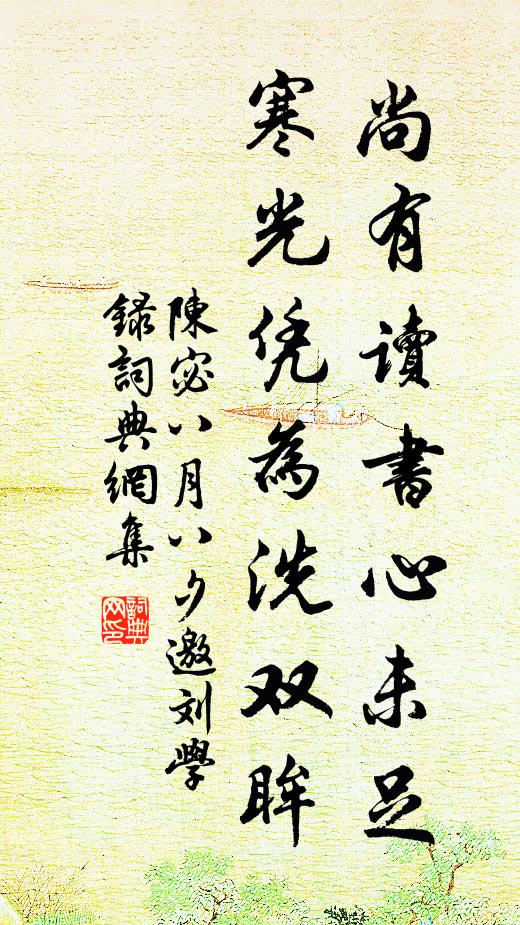 尚有讀書心未足
寒光凭為洗双眸
陳宓八月八夕邀刘學
錄詞典網集
詞典
网印